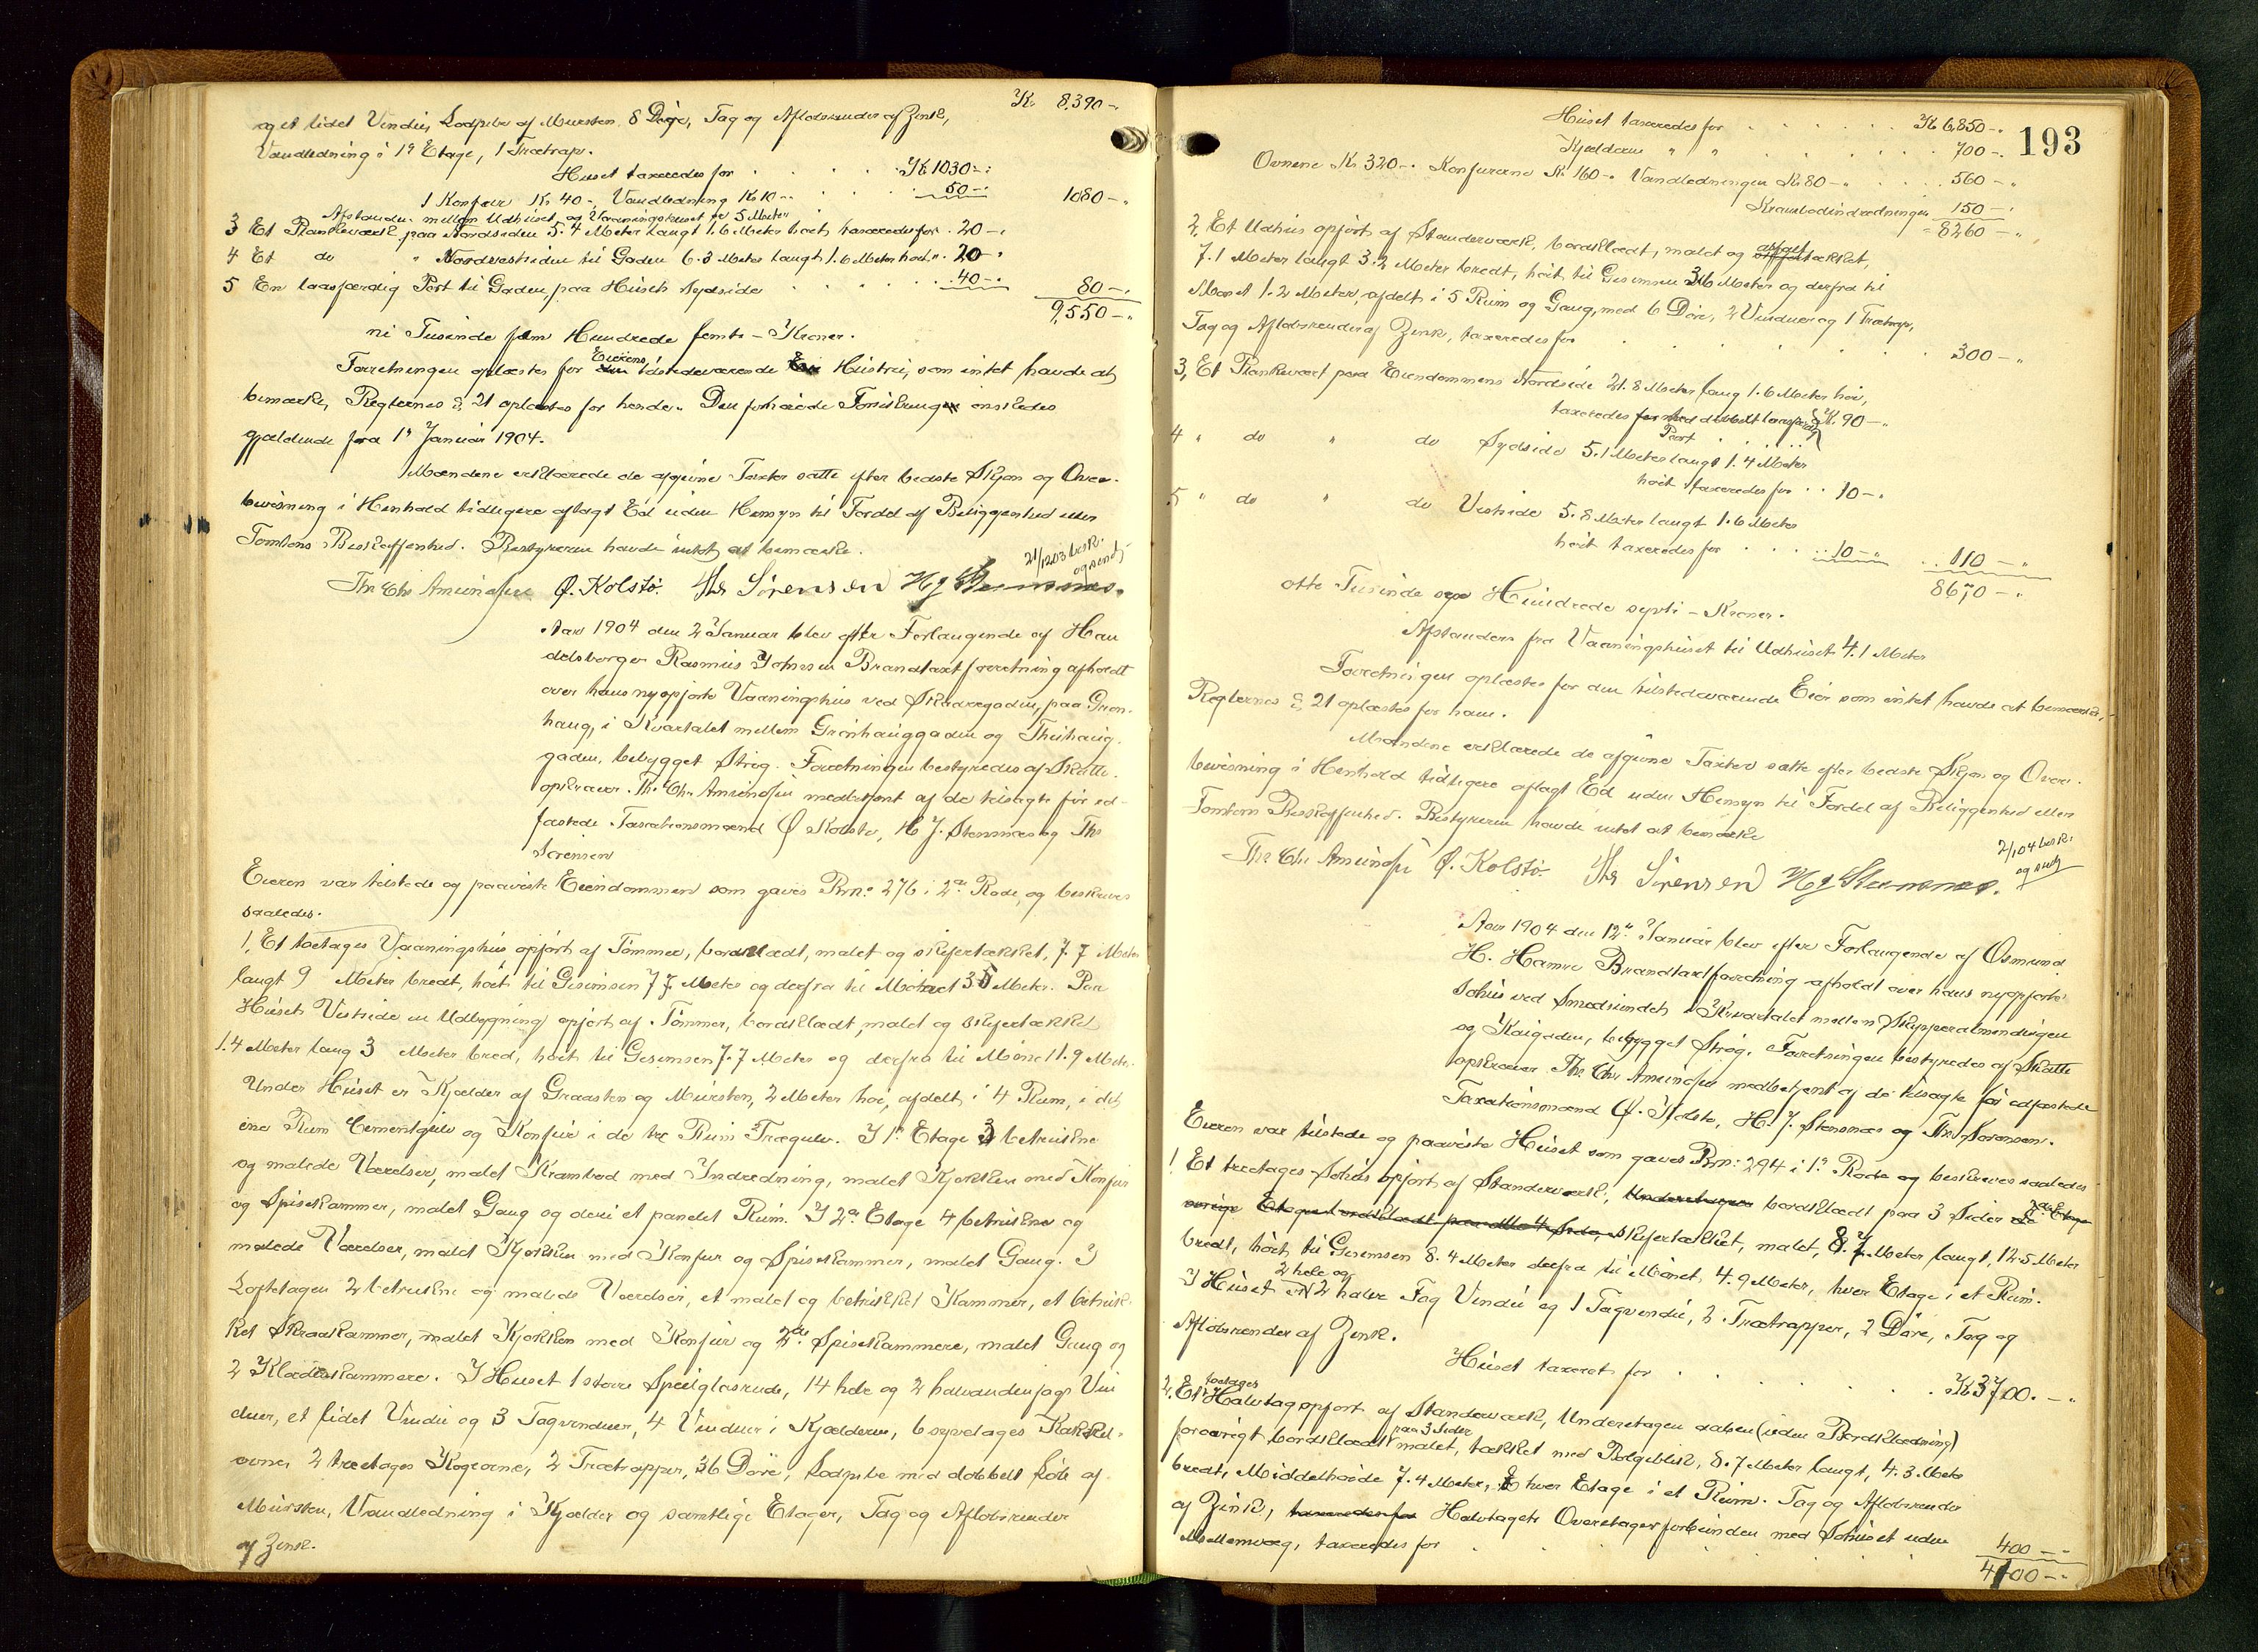 Kr. 8,390-.
og et lidet Vindu, Lodpibe af Mursten, 8 Døre, Tag og Afløbsrender af Zink,
Vandledning i 1ste Etage, 1 Trætrap.
Huset taxeredes for . . . . Kr 1030-.
1 Konfur Kr 40-, Vandledning Kr 10-. . . 50-. 1080-.
Afstanden mellem Udhuset og Vaaningshuset er 5 Meter
3 Et Plankeværk paa Nordsiden 5.4 Meter langt 1.6 Meter høit taxeredes for . 20-.
4 Et do " Nordvestsiden til Gaden 6.3 Meter langt 1.6 Meter høit " . 20-.
5 En laasfærdig Port til Gaden, paa Husets Sydside . . . . 40-. 80-.
9,550-.
ni Tusinde fem Hundrede femti - Kroner.
Forretningen oplæstes for Eierens tilstedeværende Hustru, som intet havde at
bemærke, Reglernes § 21 oplæstes for hende. Den forhøiede Forsikring ønskedes
gjældende fra 1ste Januar 1904.
Mændene erklærede de afgivne Taxter satte efter bedste Skjøn og Over-
bevisning i Henhold tidligere aflagt Ed uden Hensyn til Fordel af Beliggenhed eller
Tomtens Beskaffenhed. Bestyreren havde intet at bemærke.
21/12 03 besk. og sendt
Ths Chr Amundsen Ø. Kolstø. Ths Sørensen H J Stensnæs.
Aar 1904 den 2 Januar blev efter Forlangende af Han
delsborger Rasmus Johnsen Brandtaxtforretning afholdt
over hans nyopførte Vaaningshus ved Skaaregaden, paa Grøn-
haug, i Kvartalet mellem Grønhauggaden og Thishaug-
gaden, bebygget Strøg. Forretningen bestyredes af Skatte-
opkræver Ths Chr Amundsen medbetjent af de tilsagte før ed-
fæstede Taxationsmænd Ø Kolstø, H J. Stensnæs og Ths
Sørensen
Eieren var tilstede og paaviste Eiendommen som gaves Brn: 276 i 2den Rode, og beskrives
saaledes.
1, Et toetages Vaaningshus, opført af Tømmer, bordklædt, malet og skifertækket, 7.7 Meter
langt 9 Meter bredt, høit til Gesimsen 7.7 Meter og derfra til Mønet 3.5 Meter. Paa
Husets Vestside en Udbygning opført af Tømmer, bordklædt, malet og skifertækket
1.4 Meter lang 3 Meter bred, høit til Gesimsen 7.7 Meter og derfra til Møne 11.9 Meter.
Under Huset er Kjælder af Graasten og Mursten, 2 Meter høi, afdelt i 4 Rum, i det
ene Rum Cementgulv og Konfur i de tre Rum Trægulv. I 1ste Etage 3 betrukne
og malede Værelser, malet Krambod med Indredning, malet Kjøkken med Konfur
og Spisekammer, malet Gang og deri et panelet Rum. I 2den Etage 4 betrukne og
malede Værelser, malet Kjøkken med Konfur og Spisekammer, malet Gang. I
Loftetagen 2 betrukne og malede Værelser, et malet og betrukket Kammer, et betruk-
ket Skraakammer, malet Kjøkken med Konfur og 2de Spisekammere, malet Gang og
2 Klædeskammere. I Huset 1 større Speilglasrude, 14 hele og 2 halvanden fags Vin
duer, et lidet Vindu og 3 Tagvinduer, 4 Vinduer i Kjælderen, 6 syvetages Kakkel-
ovne, 2 treetages Kogeovne, 2 Trætrapper, 36 Døre, Lodpibe med dobbelt Løb af
Mursten, Vandledning i Kjælder og samtlige Etager, Tag og Afløbsrender
af Zink.
193
Huset taxeredes for . . . . . . Kr 6,850-.
Kjælderen " " . . . . . . 700-.
Ovnene Kr 320-. Konfurerne Kr 160-. Vandledningen Kr 80-. . . . 560-.
Krambodindredningen 150-.
8260-.
2, Et Udhus opført af Standerværk, bordklædt, malet og asfalttækket,
7.1 Meter langt 3.2 Meter bredt, høit til Gesimsen 3.6 Meter og derfra til
Mønet 1.2 Meter, afdelt i 5 Rum og Gang, med 6 Døre, 2 Vinduer og 1 Trætrap,
Tag og Afløbsrender af Zink, taxeredes for . . . . . . 300-.
3, Et Plankeværk paa Eiendommens Nordside 21.8 Meter lang 1.6 Meter høi,
taxeredes for med dobbelt laasfærdig Port Kr. 90-.
4 " do " do Sydside 5.1 Meter langt 1.4 Meter
høit taxeredes for . . 10-.
5 " do " do Vestside 5.8 Meter langt 1.6 Meter
høit taxeredes for . . . . . 10-. . . 110-.
8670-.
otte Tusinde sex Hundrede sytti - Kroner.
Afstanden fra Vaaningshuset til Udhuset 4.1 Meter
Forretningen oplæstes for den tilstedeværende Eier som intet havde at bemærke,
Reglernes § 21 oplæstes for ham.
Mændene erklærede de afgivne Taxter satte efter bedste Skjøn og Over-
bevisning i Henhold tidligere aflagt Ed uden Hensyn til Fordel af Beliggenhed eller
Tomtens Beskaffenhed. Bestyreren havde intet at bemærke
2/1 04 besk. og sendt
Ths Chr Amundsen Ø. Kolstø. Ths Sørensen H J Stensnæs.
Aar 1904 den 12te Januar blev efter Forlangende af Osmund
H. Hamre Brandtaxtforretning afholdt over hans nyopførte
Søhus ved Smedsundet i Kvartalet mellem Skipperalmendingen
og Kaigaden, bebygget Strøg. Forretningen bestyredes af Skatte
opkræver Ths Chr Amundsen medbetjent af de tilsagte før edfæstede
Taxationsmænd Ø. Kolstø, H. J. Stensnæs og Ths Sørensen.
Eieren var tilstede og paaviste Huset som gaves Brn: 294 i 1ste Rode og beskrives saaledes
1 Et treetages Søhus opført af Standerværk, Understagen bordklædt paa 3 Sider de 2de Etage
øvrige Etager bordklædt paa alle 4 Sider, skifertækket, malet, 8.7 Meter langt, 12.5 Meter
bredt, høit til Gesimsen 8.4 Meter derfra til Mønet, 4.9 Meter, hver Etage i et Rum.
I Huset er 2 hele og 2 halve Fag Vindu og 1 Tagvindu, 2 Trætrapper, 2 Døre, Tag og
Afløbsrender af Zink.
Huset taxeret for . . . . . . Kr 3700.-.
2. Et toetages Halvtag opført af Standerværk, Understagen aaben (uden Bordklædning)
forøvrigt bordklædt paa 3 Sider malet, tækket med Bølgeblik, 8.7 Meter langt, 4.3 Meter
bredt, Middelhøide 7.4 Meter, hver Etage i et Rum. Tag og Afløbsrender
af Zink, taxeredes for Halvtagets Overetager forbunden med Søhuset uden
Mellemvæg, taxeredes for . . . . . . 400-.
4100-.